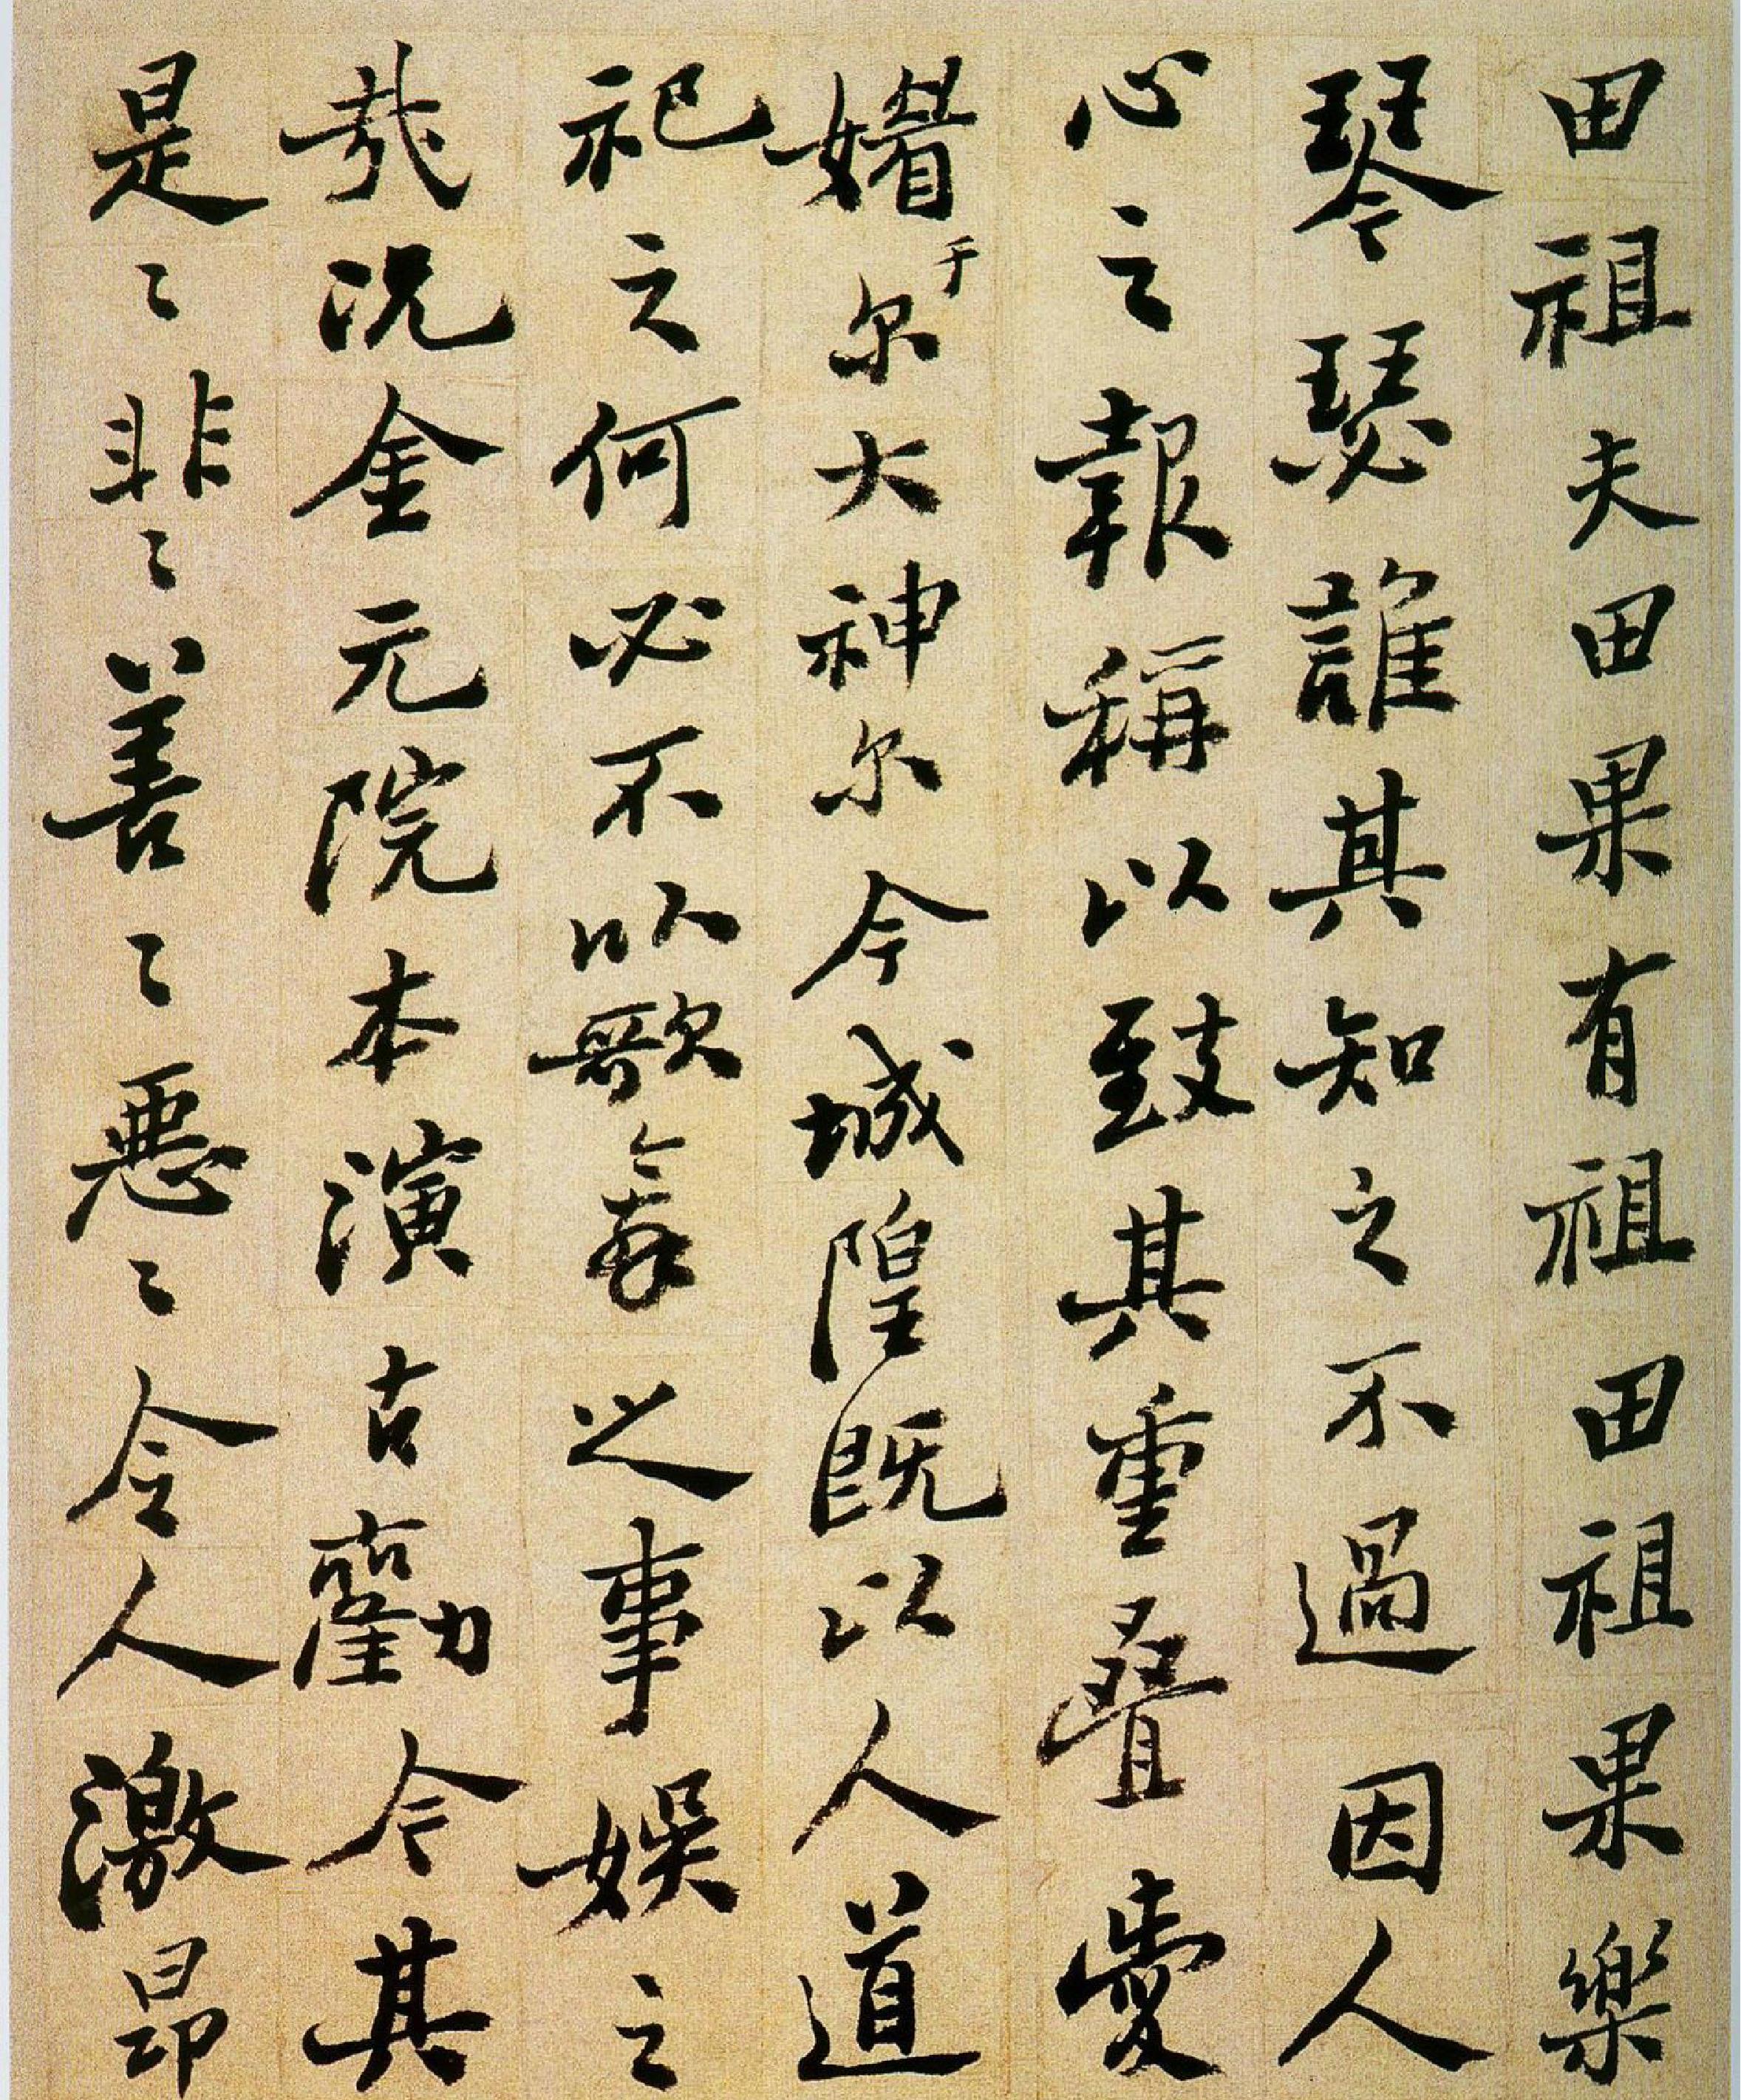 田祖夫田果有祖田祖果樂
琴瑟誰其知之不過因人
心之報稱以致其重疊愛
媚于尔大神尔今城隍既以人道
祀之何必不以歌舞之事娱之
哉况金元院本演古勸今其
是々非々善々惡々令人激昂